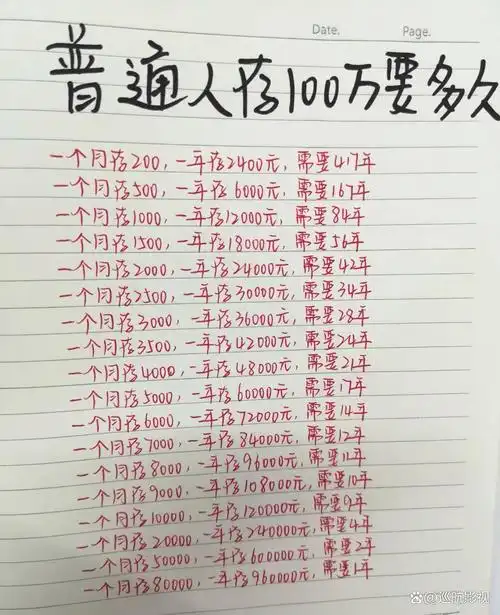 Date. Page.
普通人存100万要多久
一个月存200,一年存2400元,需要417年
一个月存500,一年存6000元,需要167年
一个月存1000,一年存12000元,需要84年
一个月存1500,一年存18000元,需要56年
一个月存2000,一年存24000元,需要42年
一个月存2500,一年存30000元,需要34年
一个月存3000,一年存36000元,需要28年
一个月存3500,一年存42000元,需要24年
一个月存4000,一年存48000元,需要21年
一个月存5000,一年存60000元,需要17年
一个月存6000,一年存72000元,需要14年
一个月存7000,一年存84000元,需要12年
一个月存8000,一年存96000元,需要11年
一个月存9000,一年存108000元,需要10年
一个月存10000,一年存120000元,需要9年
一个月存20000,一年存240000元,需要4年
一个月存50000,一年存600000元,需要2年
一个月存80000,一年存960000元,需要1年
@巡航影视